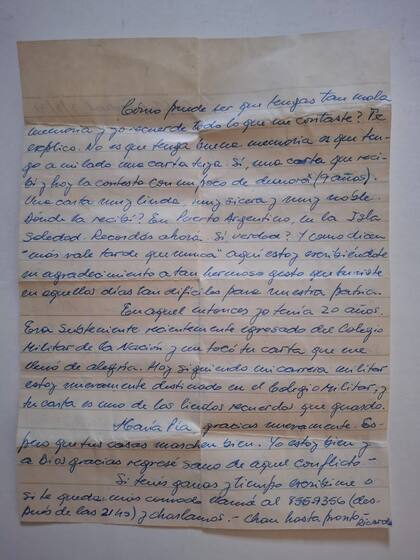 Cómo puede ser que tengas tan mala
memoria y yo recuerde todo lo que me contaste? Te
explico. No es que tenga buena memoria es que ten-
go a mi lado una carta tuya. Sí, una carta que reci-
bí y hoy la contesto con un poco de demora (9 años).
Una carta muy linda, muy sincera y muy noble.
Dónde la recibí? En Puerto Argentino, en la Isla
Soledad. Recordás ahora. Sí, verdad? Y como dicen
"más vale tarde que nunca" aquí estoy escribiéndote
mi agradecimiento a tan hermoso gesto que tuviste
en aquellos días tan difíciles para nuestra patria.
En aquel entonces yo tenía 20 años.
Era Subteniente recientemente egresado del Colegio
Militar de la Nación y me tocó tu carta que me
llenó de alegría. Hoy siguiendo mi carrera militar
estoy nuevamente destinado en el Colegio Militar, y
tu carta es uno de los lindos recuerdos que guardo.
María Pía, gracias nuevamente. Es-
pero que tus cosas marchen bien. Yo estoy bien y
a Dios gracias regresé sano de aquel conflicto.-
Si tenés ganas y tiempo escribime o
si te queda más cómodo llamá al (des-
pués de las 2145) y charlamos.- Chau hasta pronto.-
Ricardo